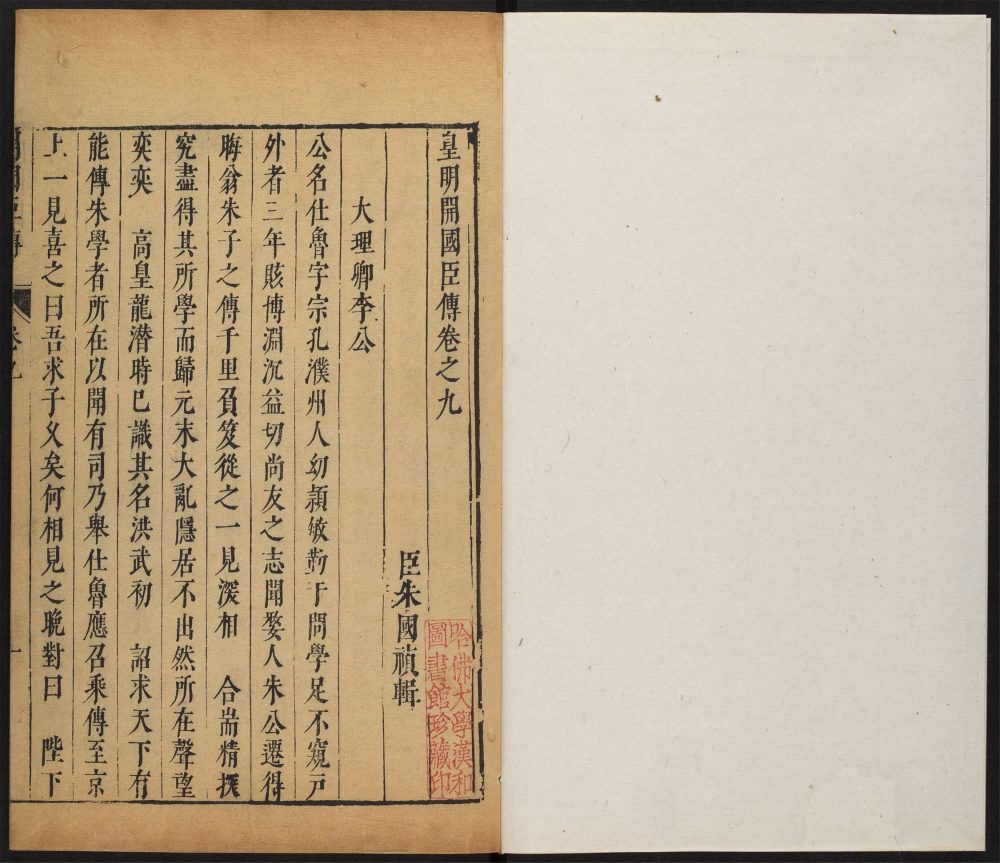 皇明開國臣傳卷之九
臣朱國禎輯
大理卿李公
公名仕魯字宗孔濮州人幼頴敏勤于問學足不窺戸
外者三年賅博淵沉益切尚友之志聞婺人朱公遷得
晦翁朱子之傳千里負笈從之一見深相 合耑精探
究盡得其所學而歸元末大亂隱居不出然所在聲望
奕奕 高皇龍潜時已識其名洪武初 詔求天下有
能傳朱學者所在以聞有司乃舉仕魯應召乘傳至京
上一見喜之曰吾求子乆矣何相見之晚對曰 陛下
開國臣傳 卷九 一
哈佛大學漢和
圖書館珍藏印